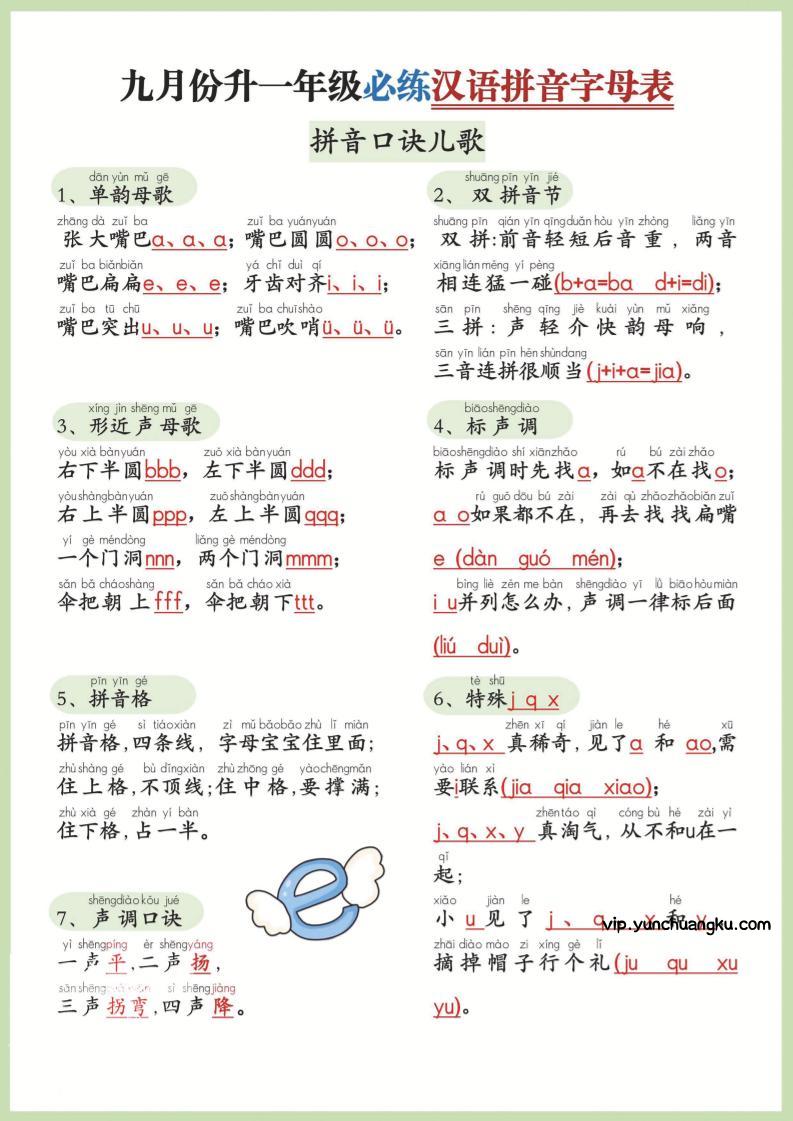 九月份升一年级必练汉语拼音字母表
拼音口诀儿歌
dān yùn mǔ gē
1、单韵母歌
zhāng dà zuǐ ba zuǐ ba yuányuán
张大嘴巴a、a、a；嘴巴圆圆o、o、o；
zuǐ ba biǎnbiǎn yá chǐ duì qí
嘴巴扁扁e、e、e；牙齿对齐i、i、i；
zuǐ ba tū chū zuǐ ba chuīshào
嘴巴突出u、u、u；嘴巴吹哨ü、ü、ü。
shuāng pīn yīn jié
2、双拼音节
shuāng pīn qián yīn qīng duǎn hòu yīn zhòng liǎng yīn
双拼:前音轻短后音重，两音
xiāng lián měng yí pèng
相连猛一碰(b+a=ba d+i=di)；
sān pīn shēng qīng jiè kuài yùn mǔ xiǎng
三拼：声轻介快韵母响，
sān yīn lián pīn hěn shùndang
三音连拼很顺当(j+i+a=jia)。
xíng jìn shēng mǔ gē
3、形近声母歌
yòu xià bànyuán zuǒ xià bànyuán
右下半圆bbb，左下半圆ddd；
yòushàngbànyuán zuǒshàngbànyuán
右上半圆ppp，左上半圆qqq；
yí gè méndòng liǎng gè méndòng
一个门洞nnn，两个门洞mmm；
sǎn bǎ cháoshàng sǎn bǎ cháo xià
伞把朝上fff，伞把朝下ttt。
biāoshēngdiào
4、标声调
biāoshēngdiào shí xiānzhǎo rú bú zài zhǎo
标声调时先找a，如a不在找o；
rú guǒ dōu bú zài zài qù zhǎozhǎobiǎn zuǐ
a o如果都不在，再去找找扁嘴
e (dàn guó mén)；
bìng liè zěn me bàn shēngdiào yī lǜ biāo hòu miàn
i u并列怎么办，声调一律标后面
(liú duì)。
pīn yīn gé
5、拼音格
pīn yīn gé sì tiáoxiàn zì mǔ bǎobǎo zhù lǐ miàn
拼音格,四条线，字母宝宝住里面；
zhù shàng gé bù dǐngxiàn zhù zhōng gé yàochēngmǎn
住上格,不顶线；住中格,要撑满；
zhù xià gé zhàn yí bàn
住下格,占一半。
tè shū
6、特殊j q x
zhēn xī qí jiàn le hé xū
j、q、x 真稀奇，见了a 和 ao,需
yào lián xì
要i联系(jia qia xiao)；
zhēn táo qì cóng bù hé zài yì
j、q、x、y 真淘气，从不和u在一
qǐ
起；
xiǎo jiàn le hé
小 u 见了 j、q x和y
zhāi diào mào zi xíng gè lǐ
摘掉帽子行个礼(ju qu xu
yu)。
shēngdiào kǒu jué
7、声调口诀
yì shēngpíng èr shēngyáng
一声平,二声扬，
sān shēng sì shēngjiàng
三声拐弯,四声降。
vip.yunchuangku.com